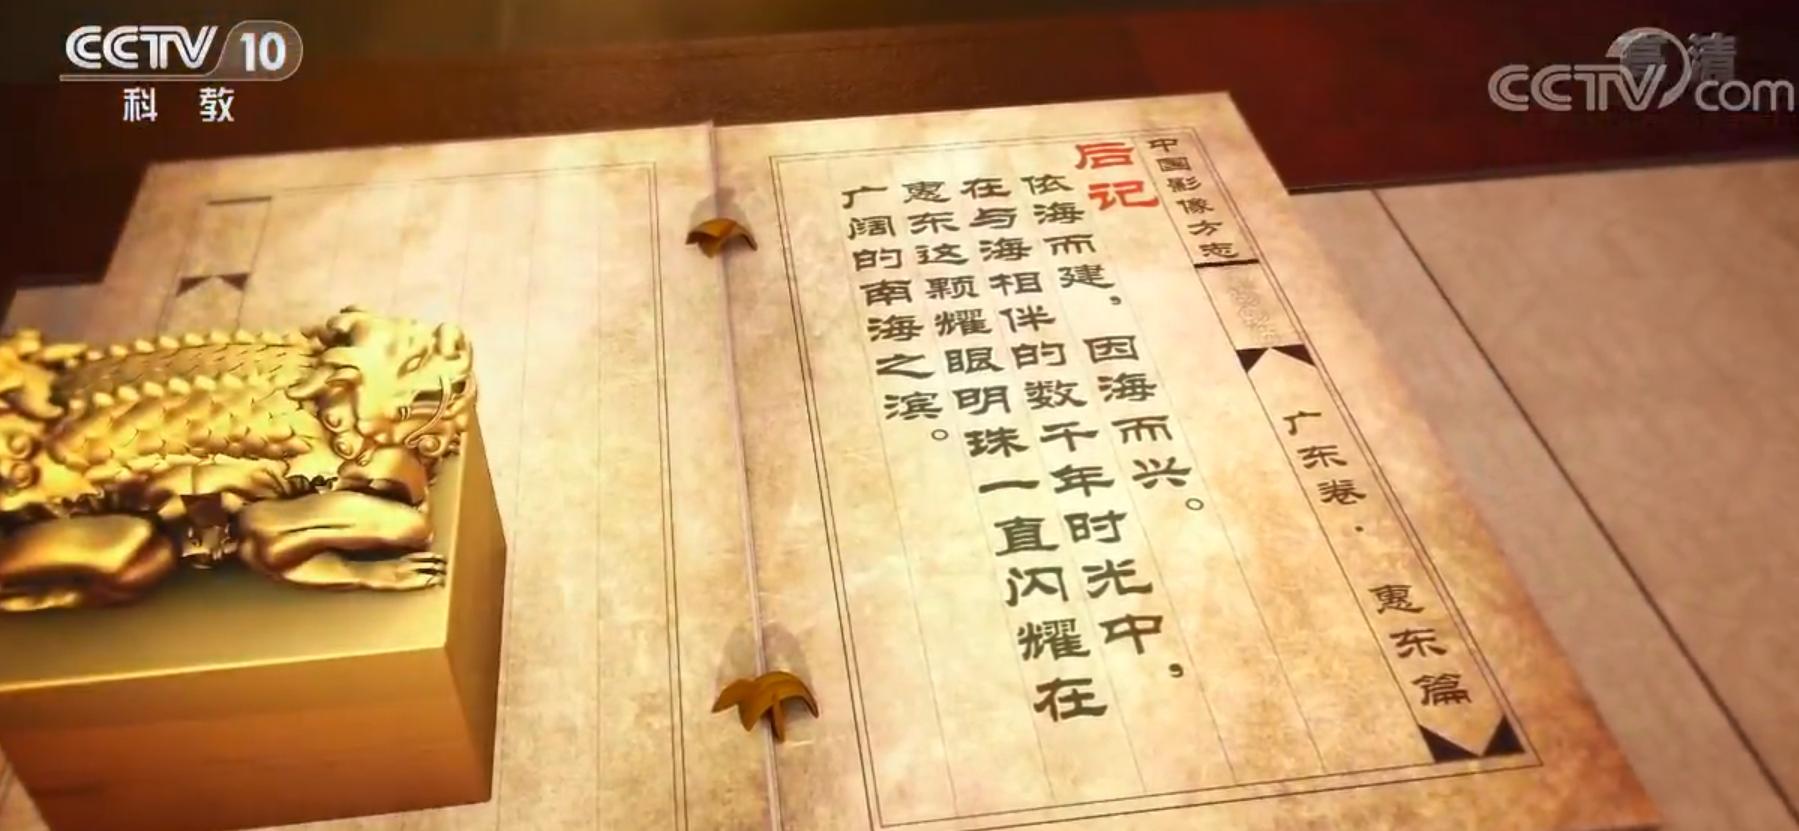 CCTV 10
科教
高清
CCTV com
中国影像方志
广东卷·惠东篇
后记
依海而建，因海而兴。
在与海相伴的数千年时光中，
惠东这颗耀眼明珠一直闪耀在
广阔的南海之滨。